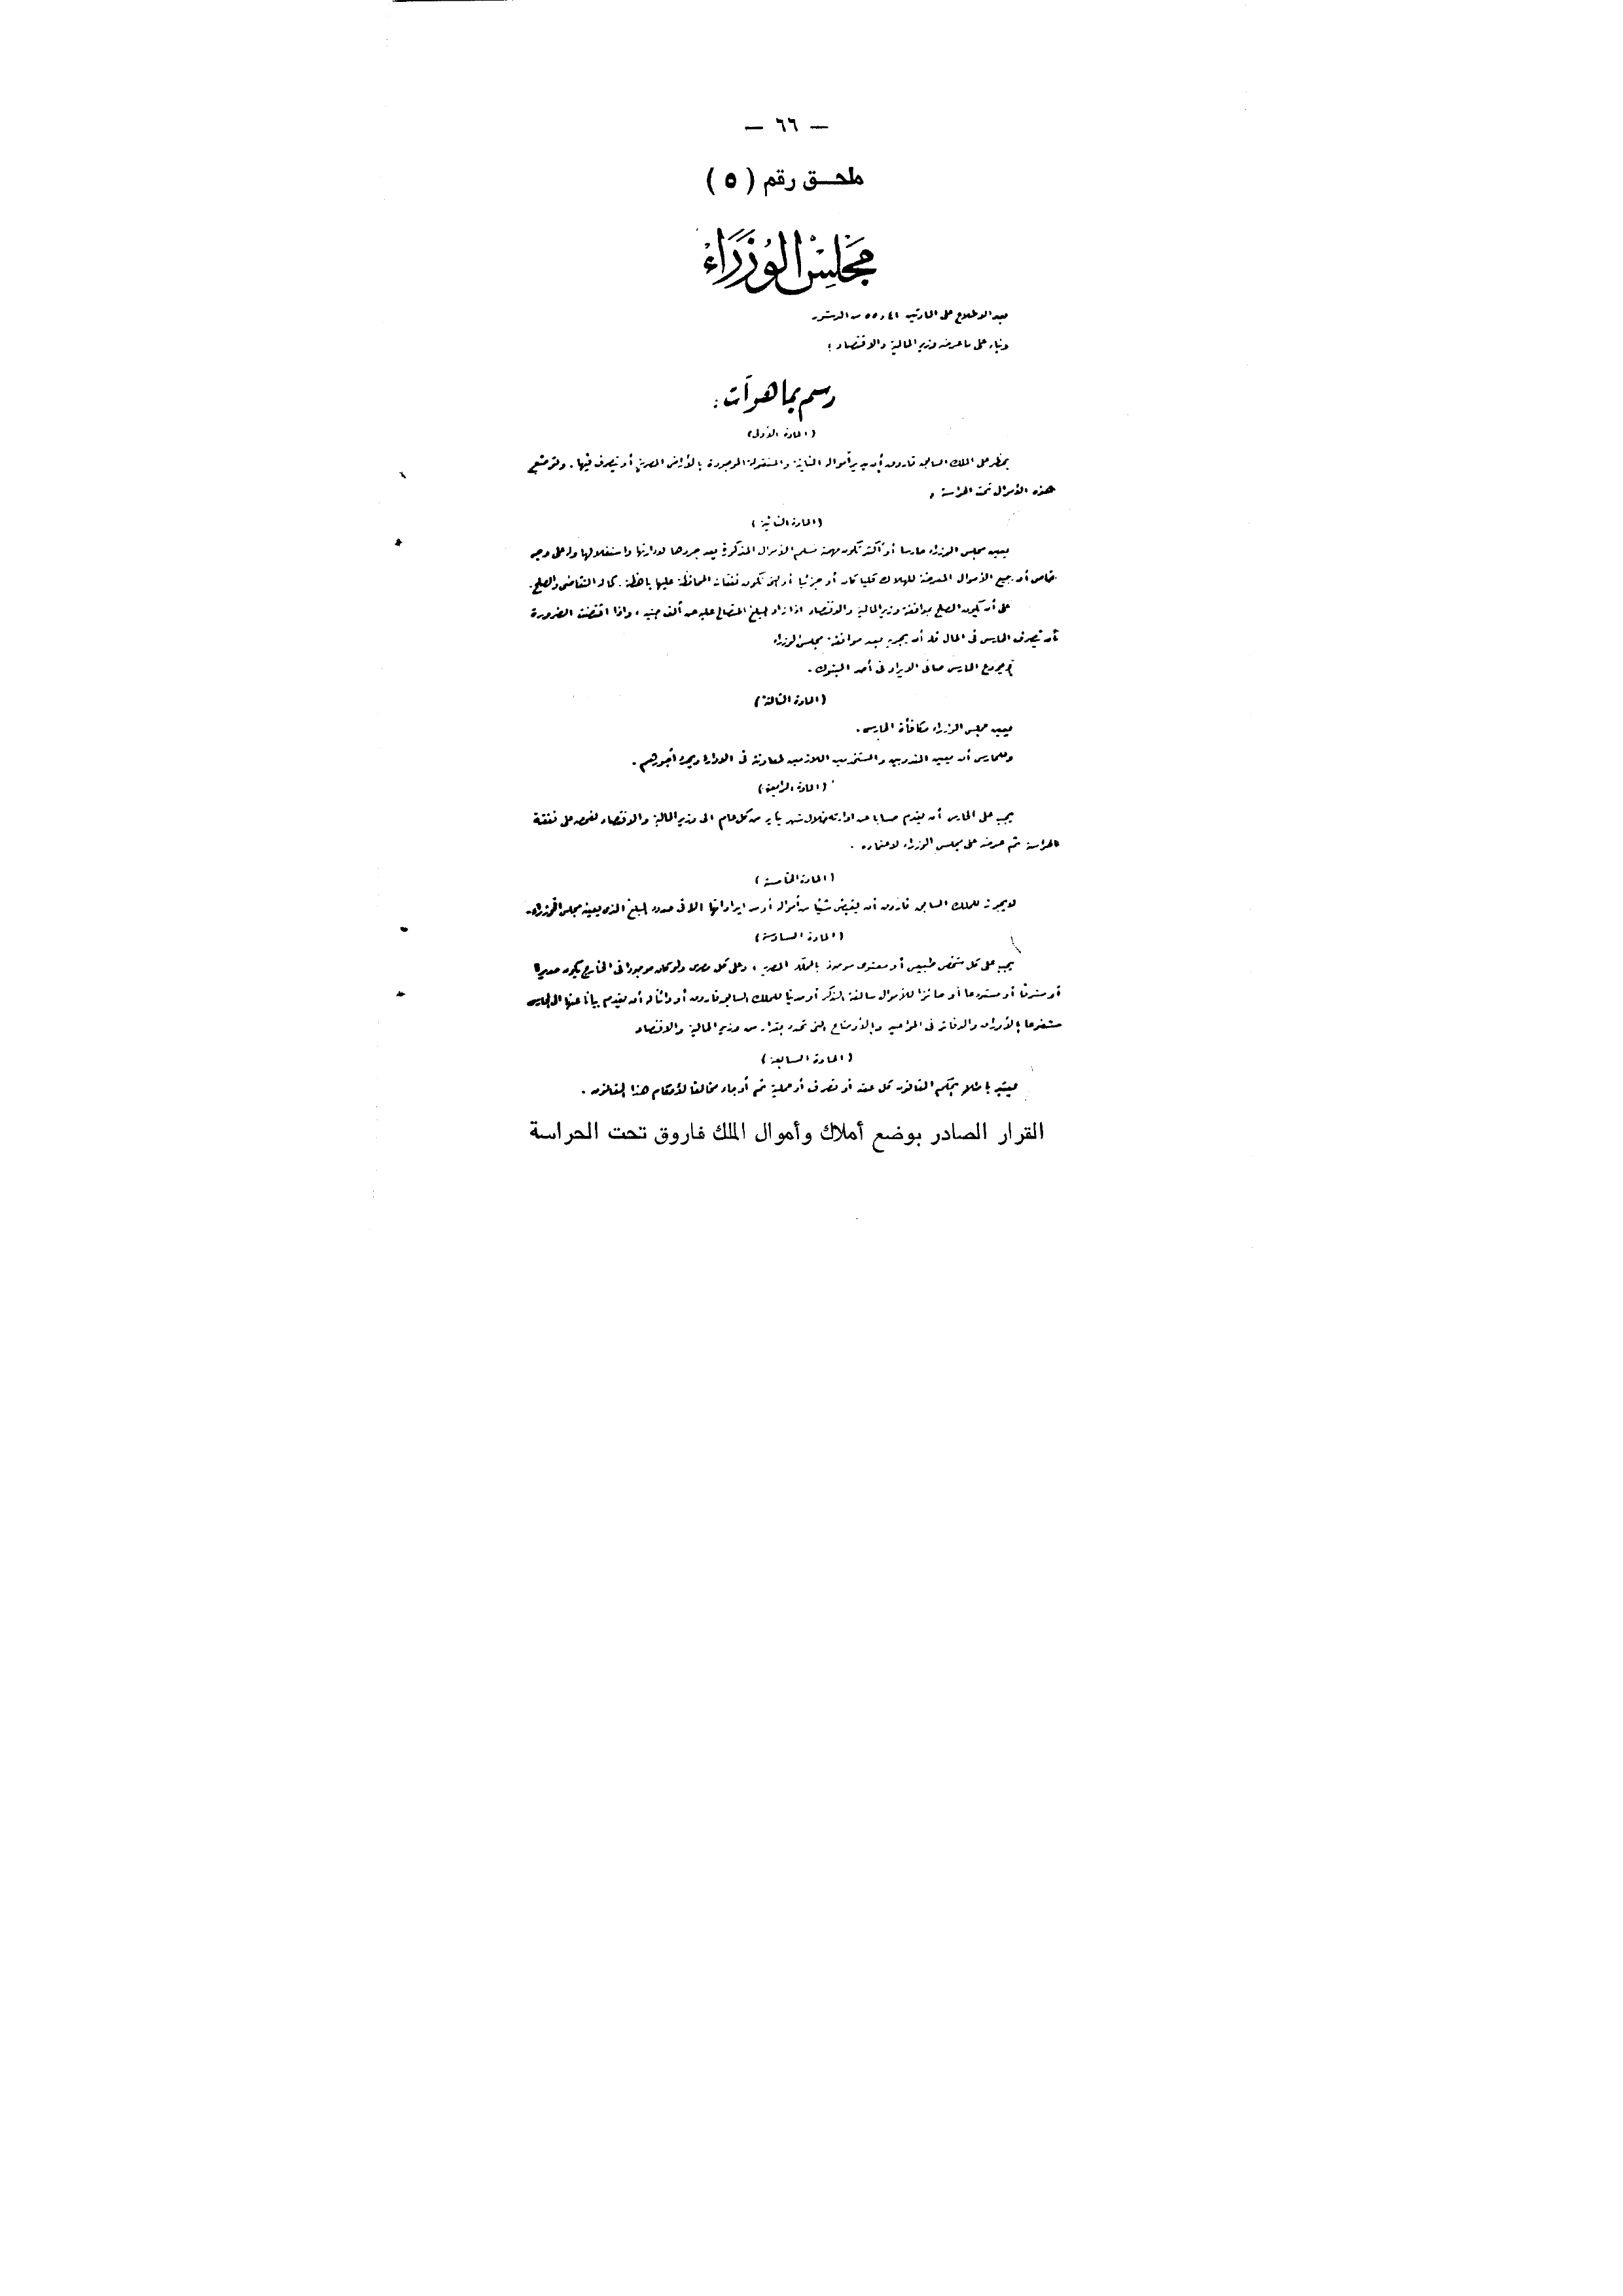 — ٦٦ —
ملحـــق رقم ( ٥ )
مَجْلِسُ الوُزَرَاءْ
بعد الاطلاع على المادتين ٤١ و ٥٥ من الدستور
وبناء على ما عرضه وزير المالية والاقتصاد ؛
رسم بما هو آت :
( المادة الأولى )
يحظر على الملك السابق فاروق أن يدير أمواله الثابتة والمنقولة الموجودة بالأراضى المصرية أو يتصرف فيها . وتوضع
هذه الأموال تحت الحراسة .
( المادة الثانية )
يعين مجلس الوزراء حارسا أو أكثر تكون مهمته تسلم الأموال المذكورة بعد جردها لادارتها واستغلالها وله على وجه
خاص أن يبيع الأموال المعرضة للهلاك كليا كان أو جزئيا أو التى تكون نفقات المحافظة عليها باهظة . كما له التقاضى والصلح .
على أن يكون الصلح بموافقة وزير المالية والاقتصاد اذا زاد المبلغ المتصالح عليه عن ألف جنيه ، واذا اقتضت الضرورة
أن يتصرف الحارس فى المال فله أن يجريه بعد موافقة مجلس الوزراء
ويودع الحارس صافى الايراد فى أحد البنوك .
( المادة الثالثة )
يعين مجلس الوزراء مكافأة الحارس .
وللحارس أن يعين المندوبين والمستخدمين اللازمين لمعاونته فى الادارة ويحدد أجورهم .
( المادة الرابعة )
يجب على الحارس أن يقدم حسابا عن ادارته خلال شهر يناير من كل عام الى وزير المالية والاقتصاد لفحصه على نفقة
الحراسة ثم عرضه على مجلس الوزراء لاعتماده .
( المادة الخامسة )
لا يجوز للملك السابق فاروق أن يقبض شيئا من أمواله أو من ايراداتها الا فى حدود المبلغ الذى يعينه مجلس الوزراء .
( المادة السادسة )
يجب على كل شخص طبيعى أو معنوى موجود بالمملكة المصرية ، وعلى كل مصرى ولو كان موجودا فى الخارج يكون مديرا
أو مشرفا أو مستودعا أو حائزا للأموال سالفة الذكر أو مدينا للملك السابق فاروق أو دائنا له أن يقدم بيانا عنها الى الحارس
مشفوعا بالأوراق والدفاتر فى المواعيد وبالأوضاع التى تحدد بقرار من وزير المالية والاقتصاد
( المادة السابعة )
يعتبر باطلا بحكم القانون كل عقد أو تصرف أو عملية تتم أو جاء مخالفا لأحكام هذا القانون .
القرار الصادر بوضع أملاك وأموال الملك فاروق تحت الحراسة